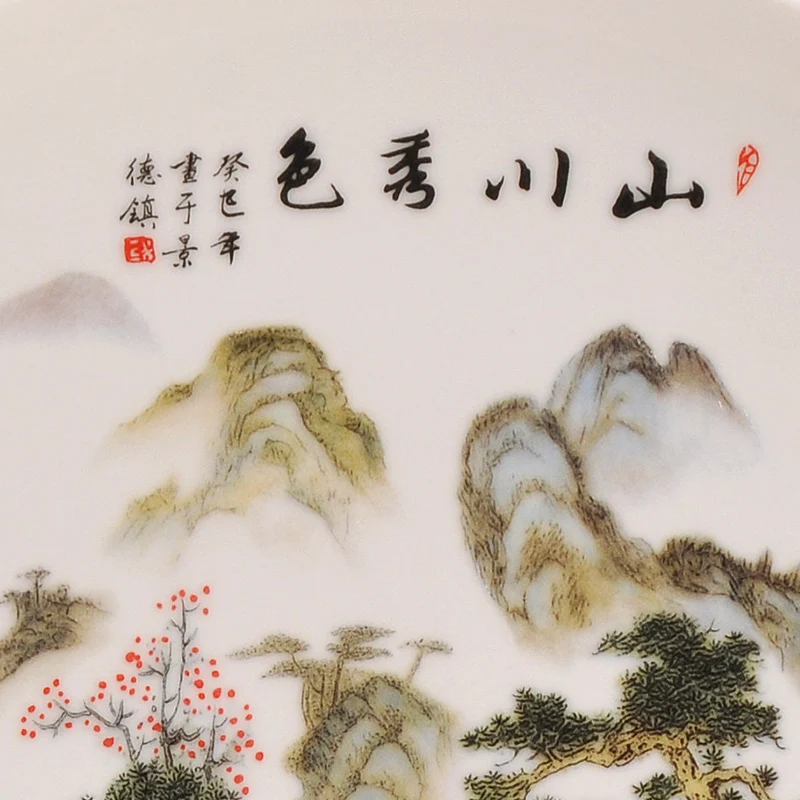 山川秀色
癸巳年
畫于景
德鎮